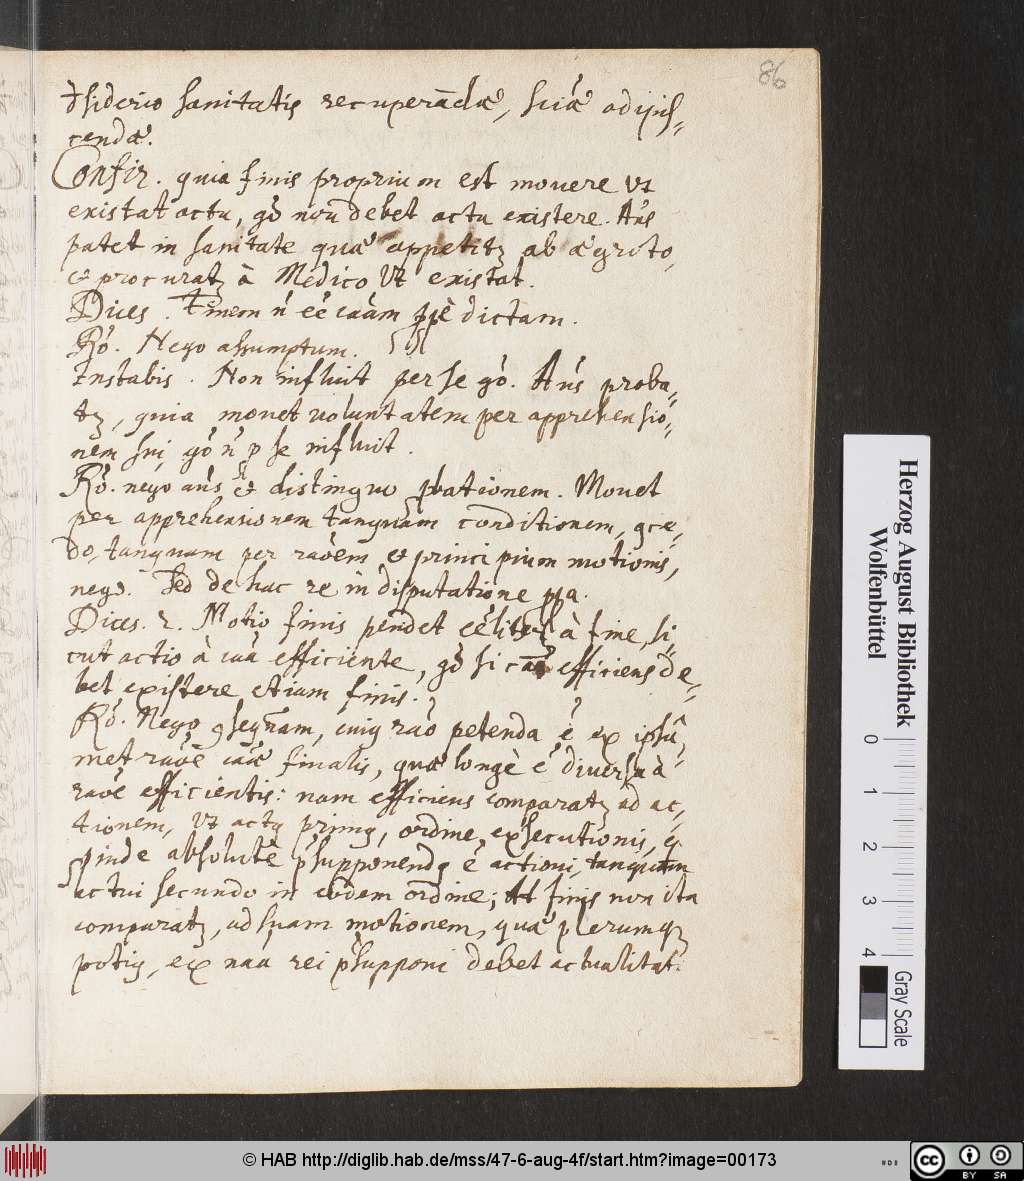 86
dsiderio sanitatis recuperãdæ, sciæ adipis=
cendæ.
Confir. quia finis proprium est mouere vt
existat actu, gò non debet actu existere. Añs
patet in sanitate quæ appetitʒ ab ægroto,
& procuratʒ à Medico vt existat.
Dices. Finem ñ eé cãam ppè dictam.
Rõ. Nego assumptum.
Instabis. Non influit per se gò. Añs proba=
tʒ, quia mouet voluntatem per apprehensio=
nem sui, gò ñ p se influit.
Rõ. nego añs & distinguo pbationem. Mouet
per apprehensionem tanquam conditionem, gcæ=
do, tanquam per raõem & principium motionis,
nego. Sed de hac re in disputatione
Dices. 2. Motio finis pendet à fine, si=
cut actio à cãa efficiente, gò si cãa efficiens de=
bet existere etiam finis.
Rõ. Nego ꝯseqñam, cuiꝯ raõ petenda é ex ipsâ=
met raõe cãæ finalis, quæ longè é diuersa à
raõe efficientis: nam efficiens comparatʒ ad ac=
tionem, vt actꝯ primꝯ, ordine exsecutionis,
pinde absolutè psupponendꝯ é actioni, tanquam
actui secundo in eodem ordine; At finis non ita
comparatʒ, ad suam motionem, quæ plerumqʒ
potiꝯ, ex naa rei psupponi debet actualitat.
Herzog August Bibliothek
Wolfenbüttel
0 1 2 3 4
Gray Scale
© HAB http://diglib.hab.de/mss/47-6-aug-4f/start.htm?image=00173
cc BY SA